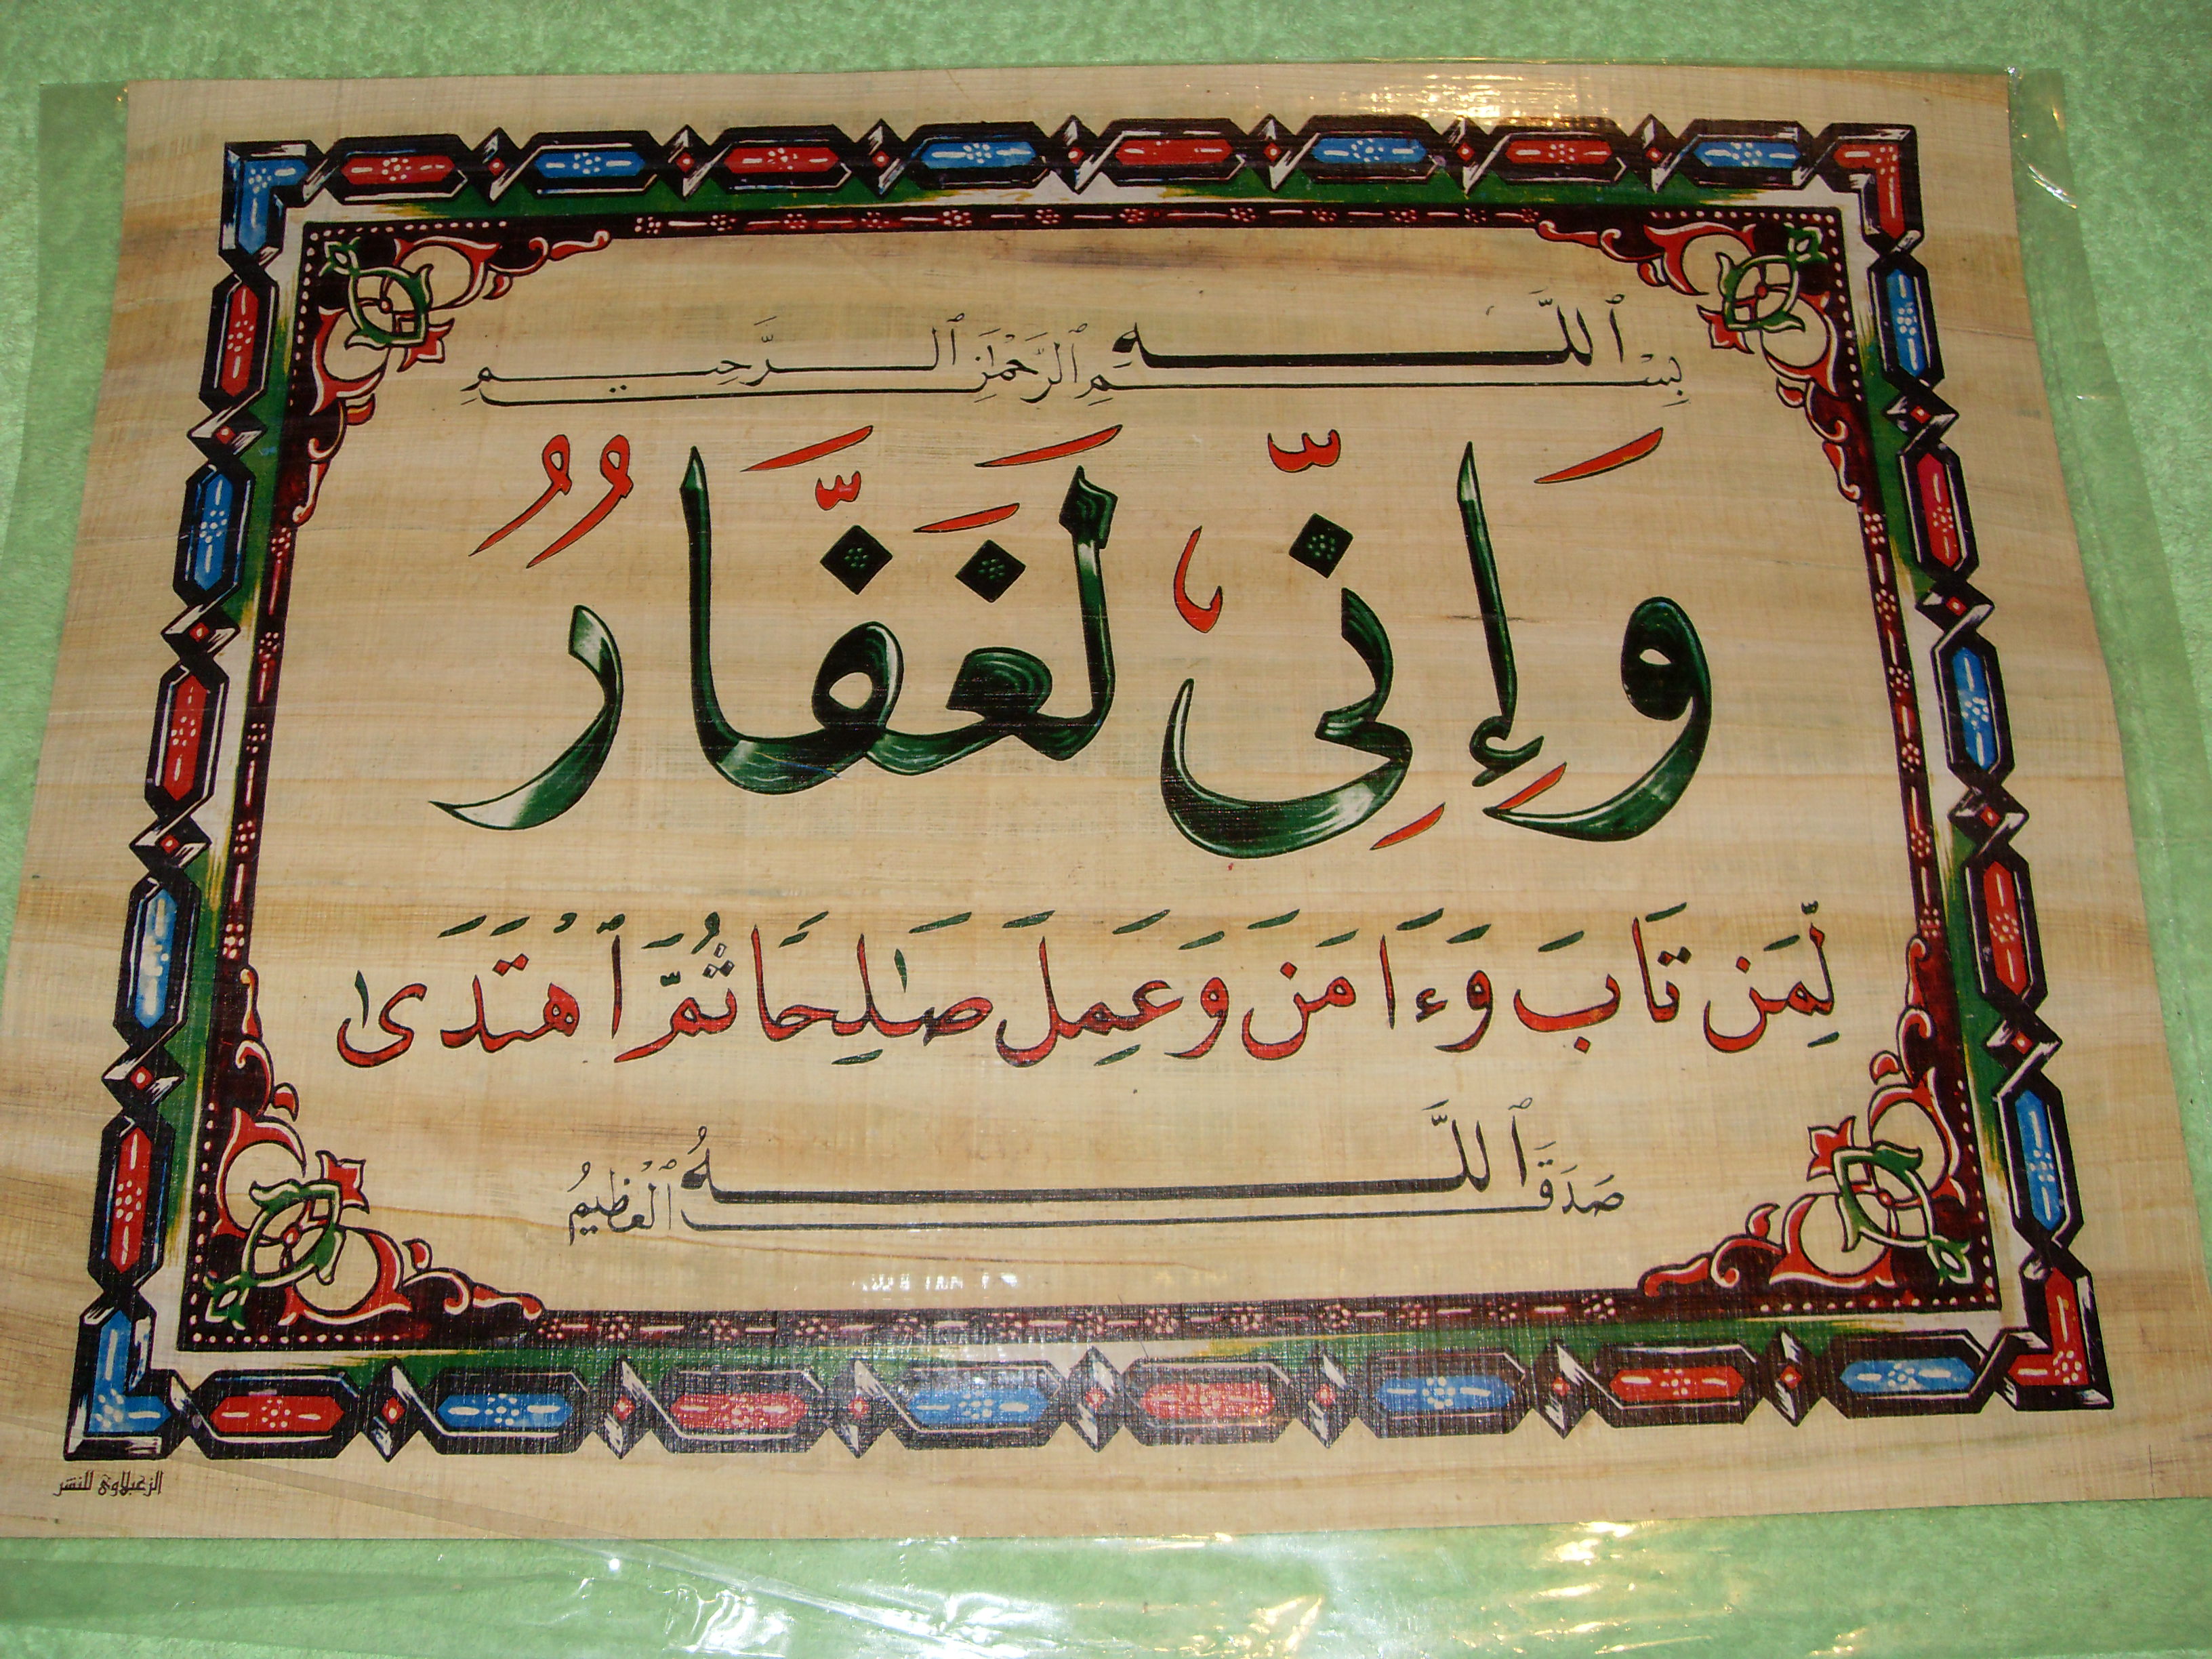 بِسْمِ ٱللَّهِ ٱلرَّحْمَٰنِ ٱلرَّحِيمِ
وَإِنِّى لَغَفَّارٌ
لِّمَن تَابَ وَءَامَنَ وَعَمِلَ صَٰلِحًا ثُمَّ ٱهْتَدَىٰ
صَدَقَ ٱللَّهُ ٱلْعَظِيمُ
الزعبلاوى للنشر